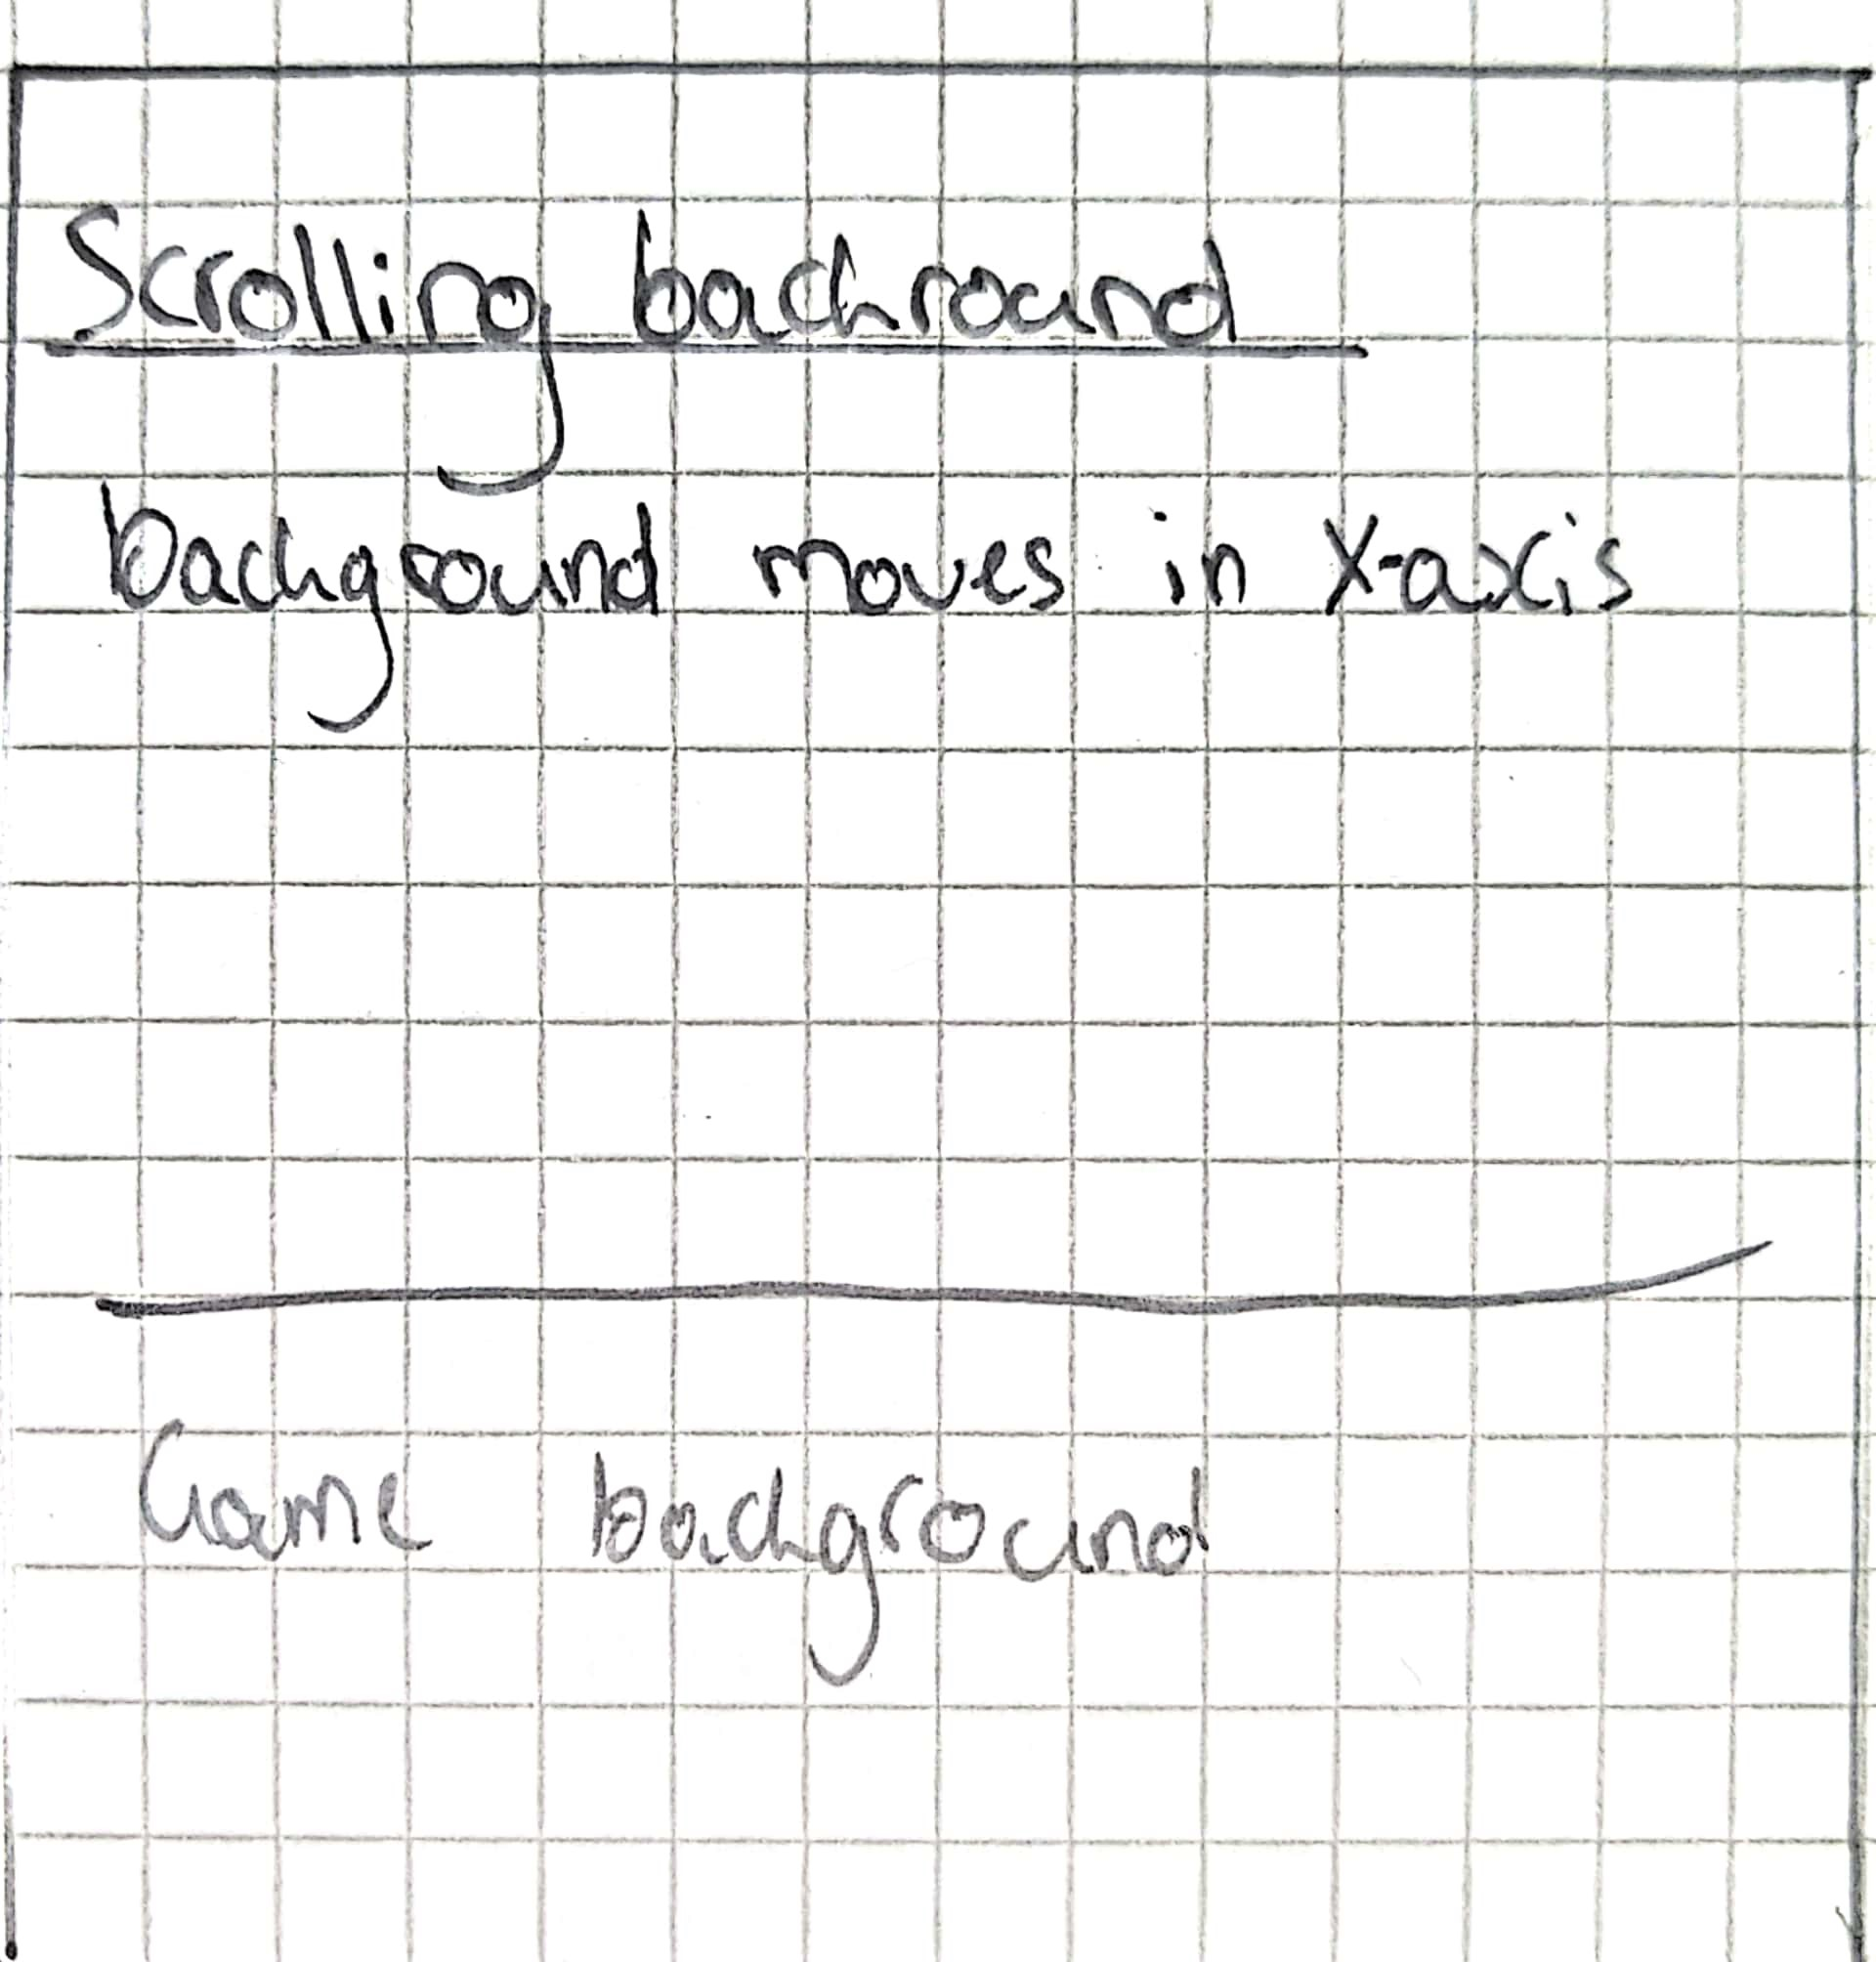 Scrolling backround
background moves in X-axis
Game background